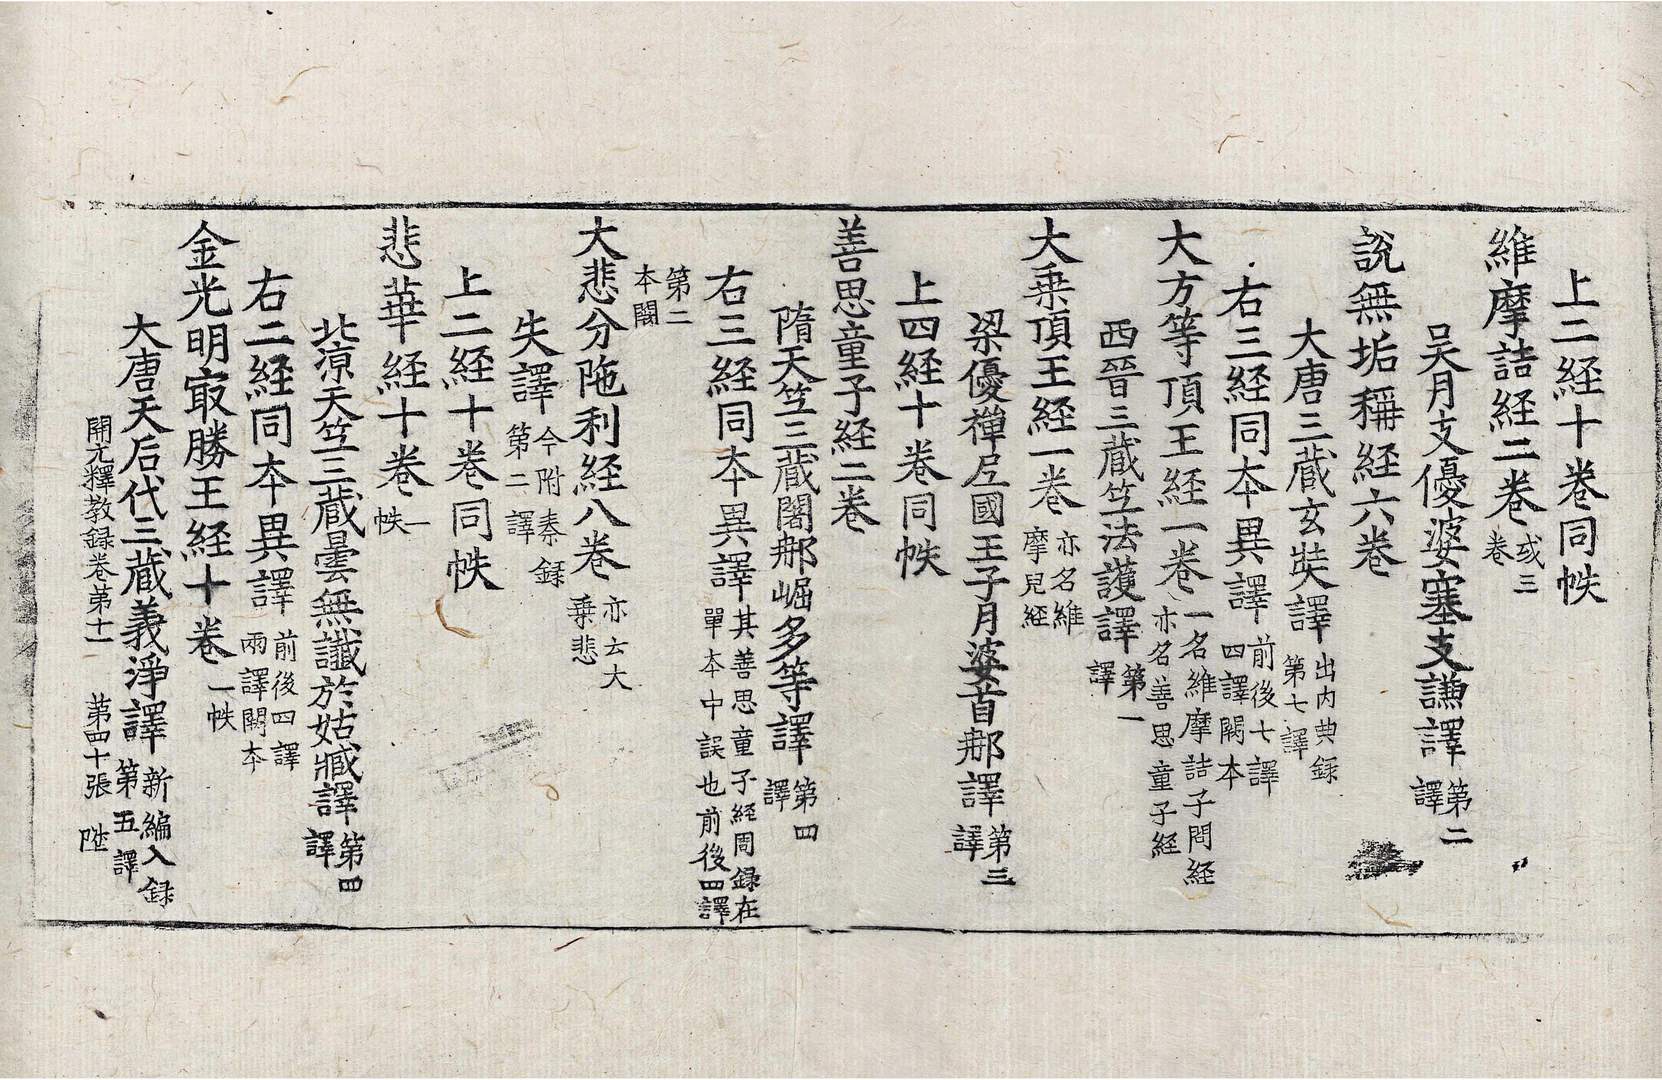 上二経十卷同帙
維摩詰経二卷或三卷
吴月支優婆塞支謙譯第二譯
說無垢稱経六卷
大唐三蔵玄奘譯出内典録第七譯
右三経同夲異譯前後七譯四譯闕本
大方等頂王経一卷一名維摩詰子問経亦名善思童子経
西晉三蔵竺法護譯第一譯
大乗頂王経一卷亦名維摩兒経
梁優禪尼國王子月婆首那譯第三譯
上四経十卷同帙
善思童子経二卷
隋天竺三蔵闍那崛多等譯第四譯
右三経同夲異譯其善思童子経周録在單夲中誤也前後四譯
第二夲闕
大悲分陁利経八卷亦云大乗悲
失譯今附秦録第二譯
上二経十卷同帙
悲華経十卷一帙
北涼天竺三蔵曇無讖於姑臧譯第四譯
右二経同夲異譯前後四譯兩譯闕夲
金光明㝡勝王経十卷一帙
大唐天后代三蔵義淨譯新編入録第五譯
開元釋教録卷第十一 第四十張 陞